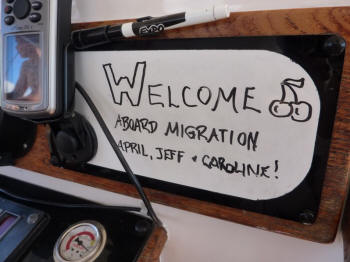 EXPO
WELCOME
ABOARD MIGRATION
APRIL, JEFF + CAROLINE!